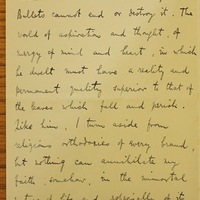 Bullets cannot end or destroy it. The
world of aspiration and thought, of
energy of mind and heart, in which
he dwelt must have a reality and
permanent quality superior to that of
the leaves which fall and perish.
Like him, I turn aside from
religious orthodoxies of every brand,
but nothing can annihilate my
faith somehow, in the immortal
nature of life and especially of its